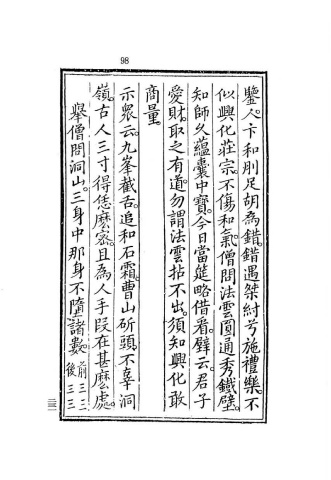 98
鑒人。卞和刖足胡為錯。錯遇桀紂兮施禮樂。不
似興化莊宗。不傷和氣。僧問法雲圓通秀鐵壁。
知師久蘊囊中寶。今日當筵略借看。壁云。君子
愛財。取之有道。勿謂法雲拈不出。須知興化敢
商量。
示眾云。九峯截舌。追和石霜。曹山斫頭。不辜洞
嶺。古人三寸得恁麼密。且為人手段在甚麼處。
舉僧問洞山。三身中那身不墮諸數。前三三
後三三